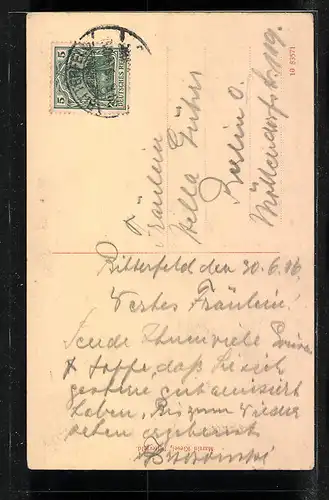 5 5
DEUTSCHES REICH
BITTERFELD
10 89571
Fräulein
Hella
Berlin O.
Möllendorfstr. 119.
Bitterfeld den 30.6.06
Wertes Fräulein!
Sende Ihnen viele
& hoffe, daß Sie sich
gestern gut amüsiert
haben. Bis zum Wieder
sehen ergebenst